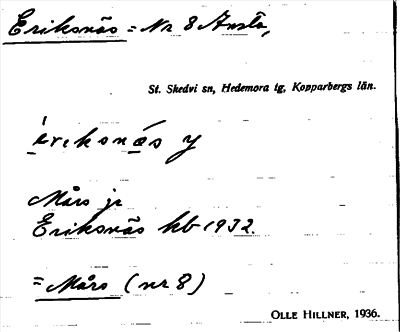 Eriksnäs = Nr 8 Ansta,
St. Skedvi sn, Hedemora tg, Kopparbergs län.
Mårs jr
Eriksnäs kb 1932.
= Mårs (nr 8)
OLLE HILLNER, 1936.